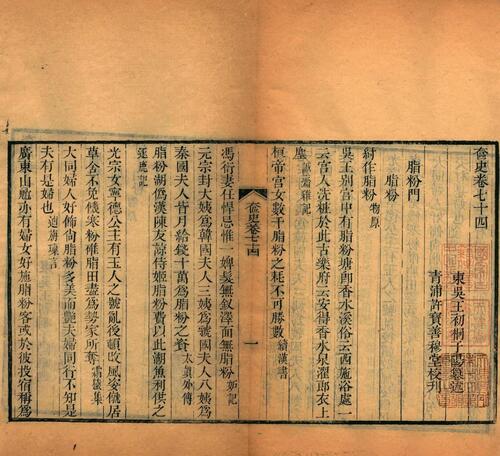 奩史卷七十四
東吳王初桐于陽纂述
青浦許寶善穆堂校刊
脂粉門
脂粉
紂作脂粉物原
吳王別宮中有脂粉塘即香水溪俗云西施浴處一
云宮人洗妝於此古樂府云安得香水泉濯郎衣上
塵
桓帝宮女數千脂粉之耗不可勝數續漢書
奩史卷七十四
一
馮衍妻任悍忌惟一婢髮無釵澤面無脂粉
元宗封大姨爲韓國夫人三姨爲虢國夫人八姨爲
秦國夫人皆月給錢十萬爲脂粉之資太真外傳
脂粉湖爲漢陳友諒侍姬脂粉費以此湖魚利供之
光宗女寧德公主有玉人之號亂後頓改風姿僦居
草舍不免饑寒粉碓脂田盡爲勢家所奪霜猨集
大同婦人好飾尚脂粉多美而艷夫婦同行不知是
夫有是婦也
廣東山魈亦有婦女好施脂粉客或於彼投宿稱爲